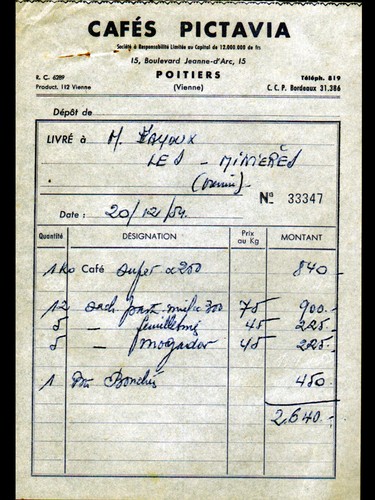 CAFÉS PICTAVIA
Société à Responsabilité Limitée au Capital de 12.000.000 de frs
15, Boulevard Jeanne-d'Arc, 15
R. C. 6289 POITIERS Téléph. 819
Product. 112 Vienne (Vienne) C. C. P. Bordeaux 31.386
Dépôt de
LIVRÉ à M. Mayoux
LES - MINIERÈS
(Vienne)
N° 33347
Date : 20/12/54.
Quantité DÉSIGNATION Prix au Kg MONTANT
1 Ko Café super 250 840
12 sach 300 75 900.-
5 - 45 225.-
5 - mogador 45 225.-
1 450
2.640.-